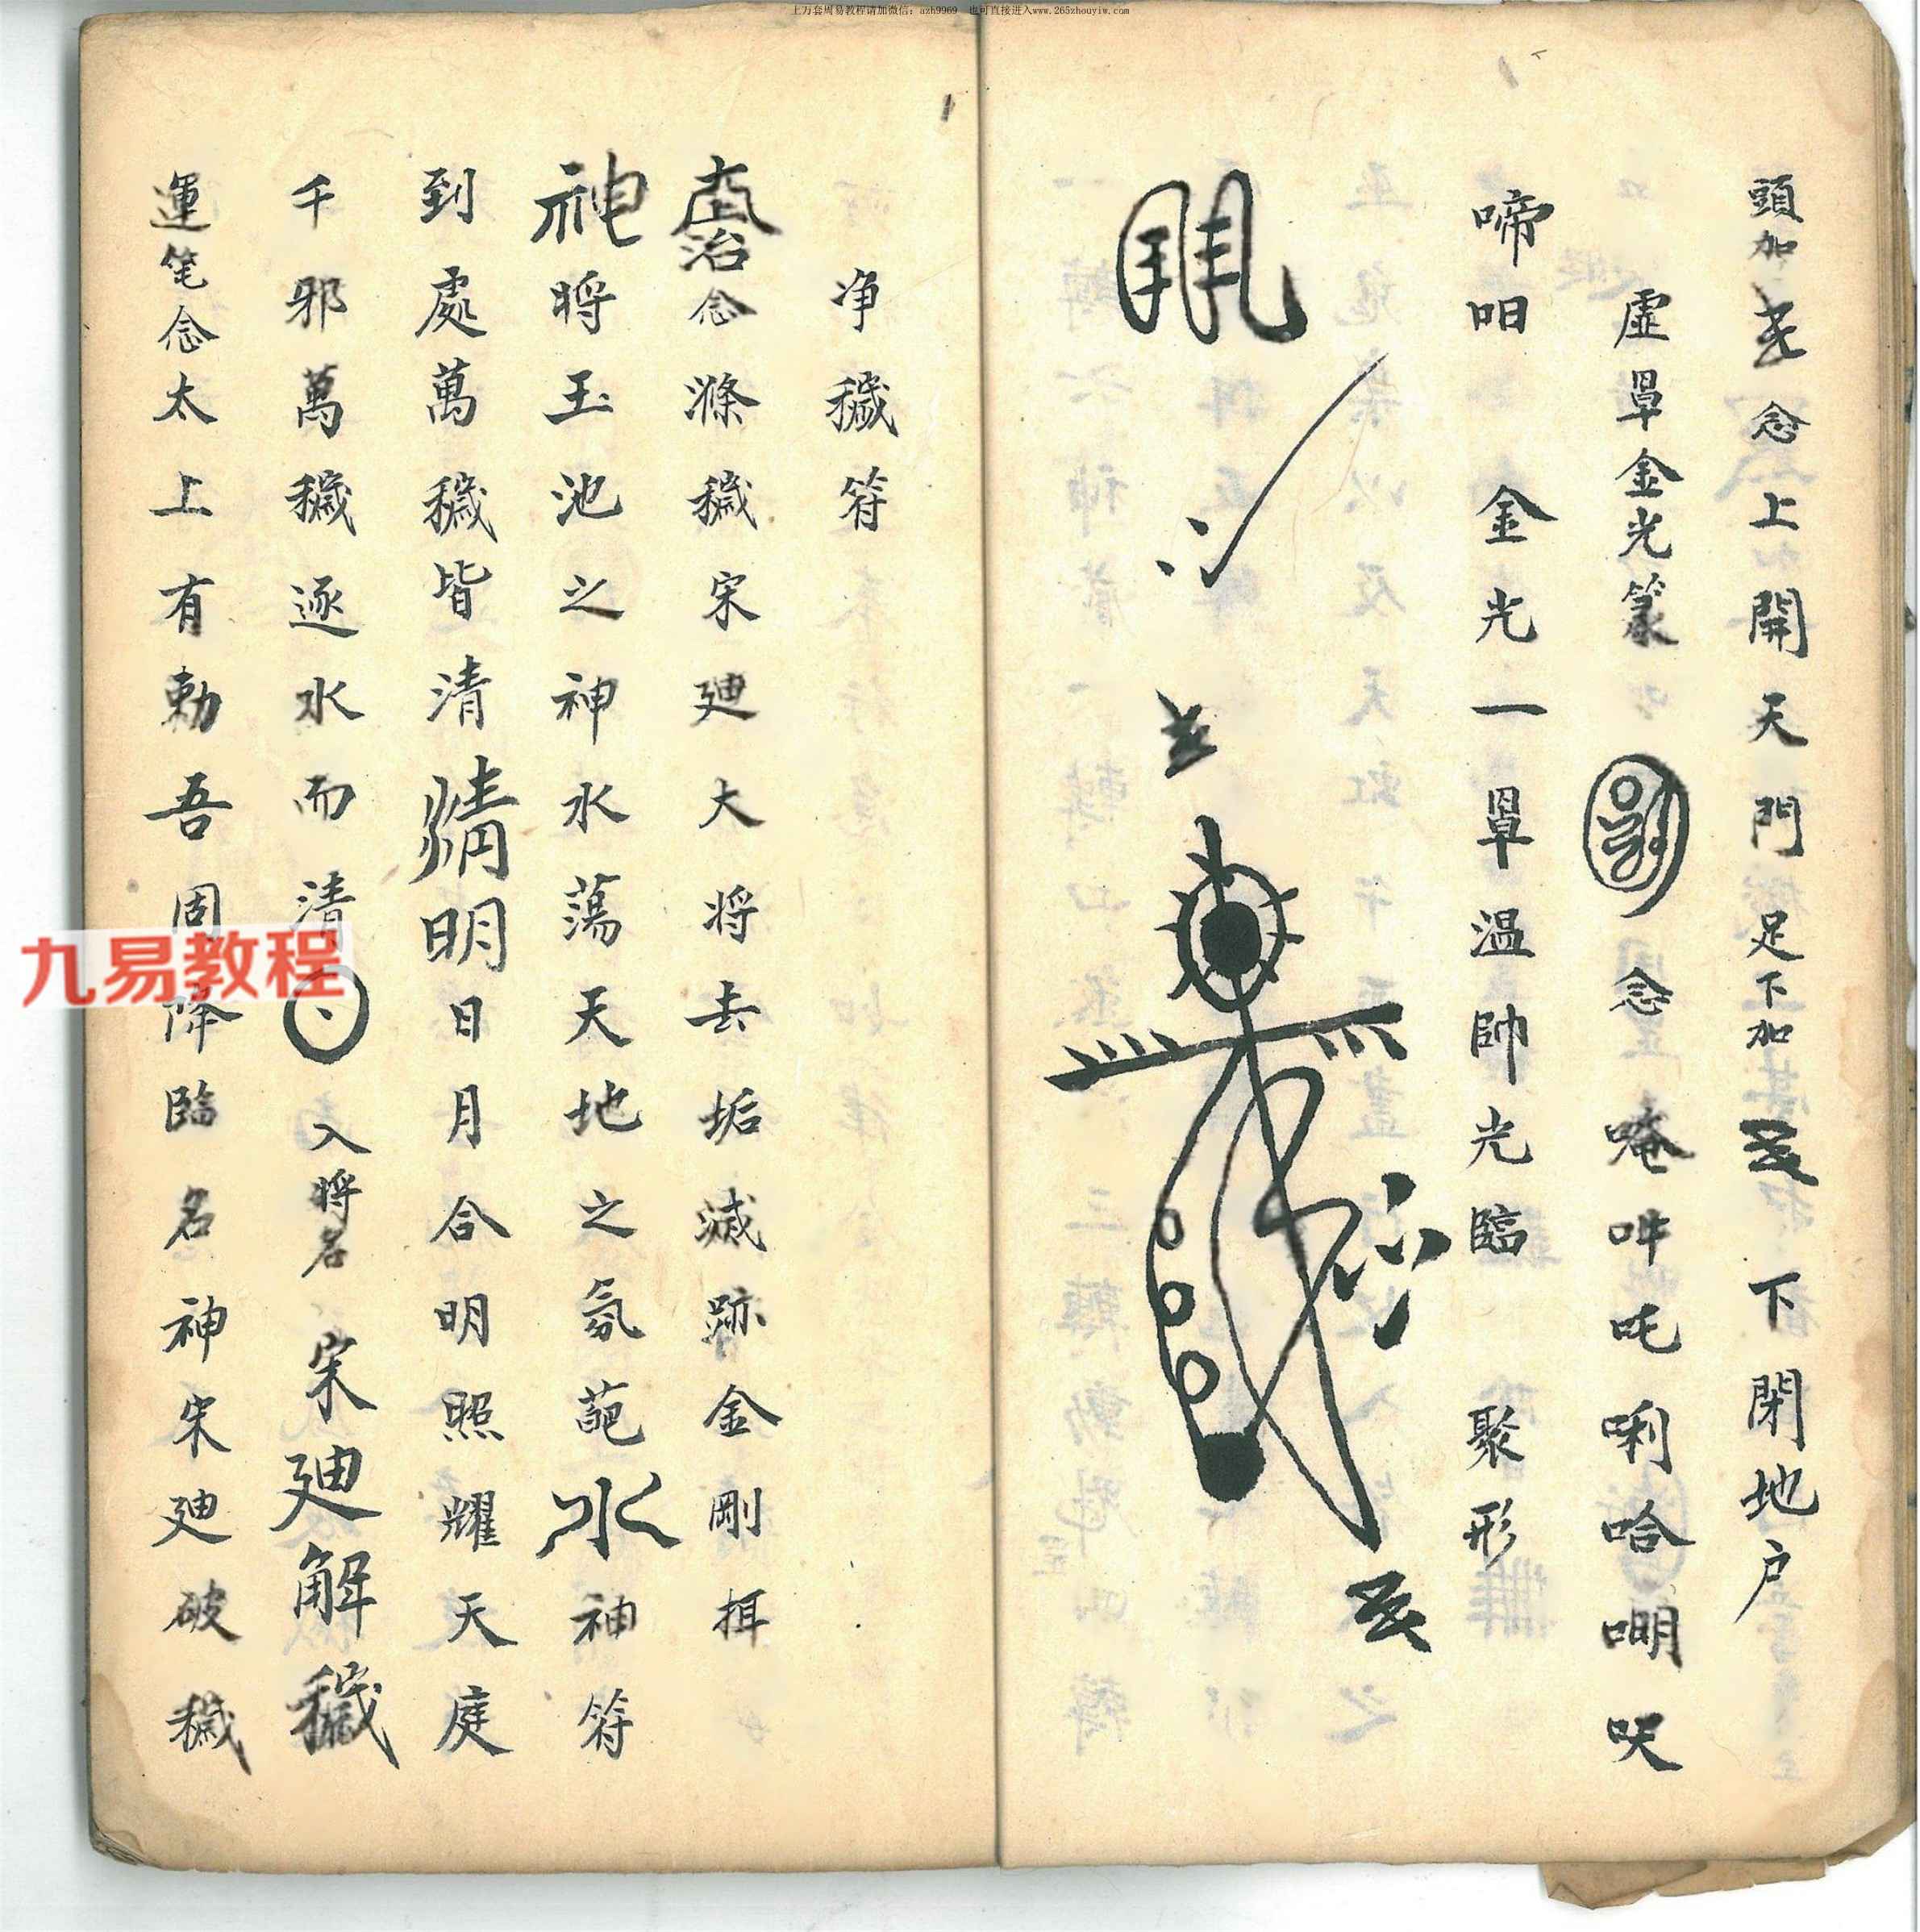 上万套周易教程请加微信：azh9969 也可直接进入www.265zhouyiw.com
頭加 念上開天門足下加 下閉地户
虛罩金光篆 念唵吽吒唎哈嘲呎
啼呾 金光一罩温帥光臨 聚形
净穢符
治念滌穢宋廸大将去垢滅跡金剛揖
神将玉池之神水蕩天地之氛葩水神符
到處萬穢皆清清明日月合明照耀天庭
千邪萬穢逐水而清 入将名宋廸解穢
運笔念太上有勅吾周降臨名神宋廸破穢
九易教程